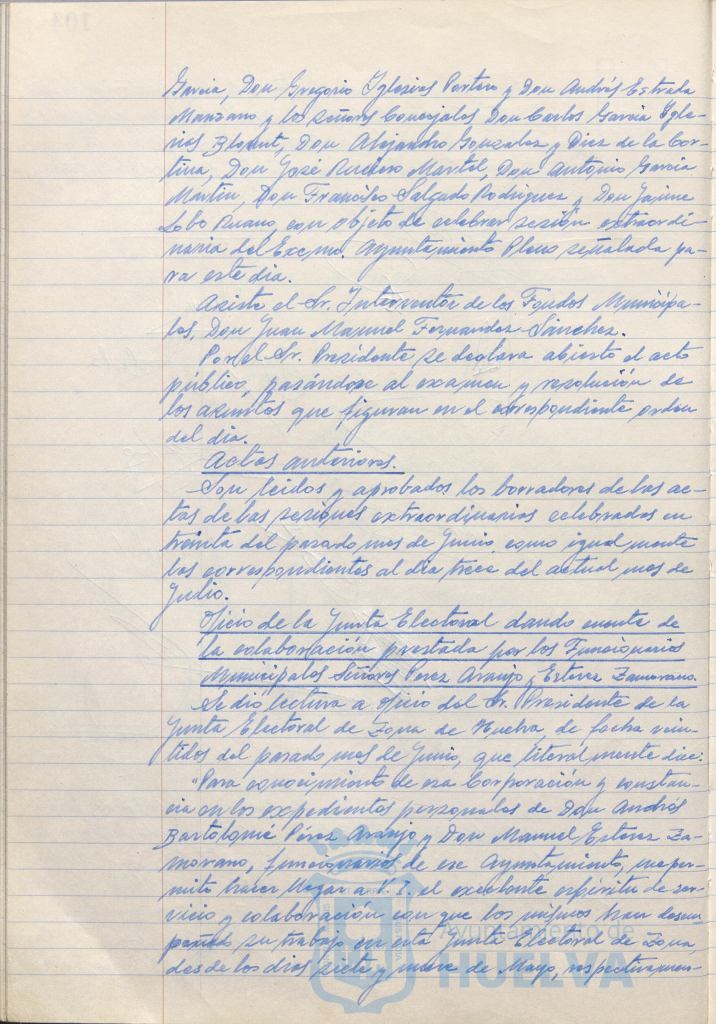 Garcia, Don Gregorio Iglesias Portero y Don Andrés Estrada
Manzano y los señores Concejales Don Carlos Garcia Igle-
sias Blount, Don Alejandro Gonzalez y Diez de la Cor-
tina, Don José Rucero Martel, Don Antonio Garcia
Martin, Don Francisco Salgado Rodriguez y Don Jaime
Lobo Ruano, con objeto de celebrar sesión extraordi-
naria del Excmo. Ayuntamiento Pleno señalada pa-
ra este dia.
Asiste el Sr. Interventor de los Fondos Municipa-
les, Don Juan Manuel Fernandez Sánchez.
Por el Sr. Presidente se declara abierto el acto
público, pasándose al examen y resolución de
los asuntos que figuran en el correspondiente orden
del dia.
Actas anteriores.
Son leidos y aprobados los borradores de las ac-
tas de las sesiones extraordinarias celebradas en
treinta del pasado mes de Junio, como igualmente
las correspondientes al dia trece del actual mes de
Julio.
Oficio de la Junta Electoral dando cuenta de
la colaboración prestada por los Funcionarios
Municipales Señores Perez Araujo y Estevez Zamorano.
Se dió lectura a oficio del Sr. Presidente de la
Junta Electoral de Zona de Huelva, de fecha vein-
tidos del pasado mes de Junio, que literalmente dice:
"Para conocimiento de esa Corporación y constan-
cia en los expedientes personales de Don Andrés
Bartolomé Pérez Araujo y Don Manuel Estevez Za-
morano, funcionarios de ese Ayuntamiento, me per-
mito hacer llegar a V. I. el excelente espíritu de ser-
vicio y colaboración con que los mismos han desem-
peñado su trabajo en esta Junta Electoral de Zona,
desde los dias siete y nueve de Mayo, respectivamen-
Ayuntamiento de
HUELVA